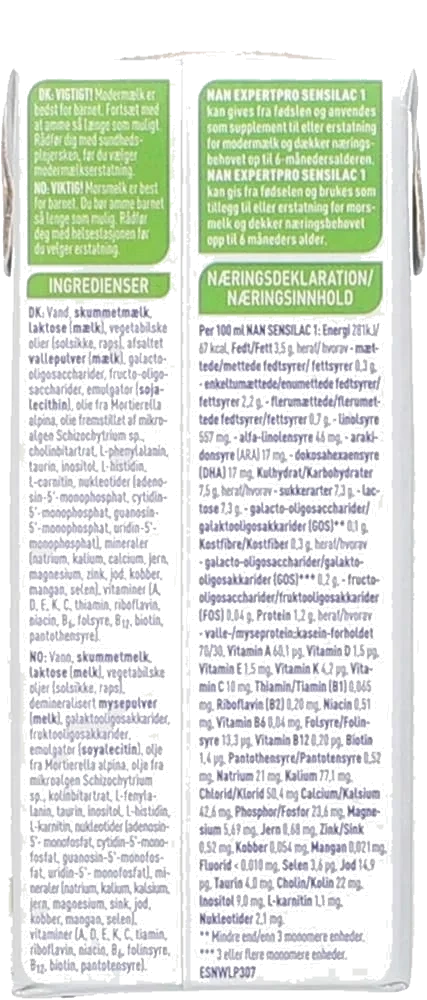 DK: VIGTIGT! Modermælk er
bedst for barnet. Fortsæt med
at amme så længe som muligt.
Rådfør dig med sundheds-
plejersken, før du vælger
modermælkserstatning.
NO: VIKTIG! Morsmelk er best
for barnet. Du bør amme barnet
så lenge som mulig. Rådfør
deg med helsestasjonen før
du velger erstatning.
INGREDIENSER
DK: Vand, skummetmælk,
laktose (mælk), vegetabilske
olier (solsikke, raps), afsaltet
vallepulver (mælk), galacto-
oligosaccharider, fructo-oligo-
saccharider, emulgator (soja-
lecithin), olie fra Mortierella
alpina, olie fremstillet af mikro-
algen Schizochytrium sp.,
cholinbitartrat, L-phenylalanin,
taurin, inositol, L-histidin,
L-carnitin, nukleotider (adeno-
sin-5'-monophosphat, cytidin-
5'-monophosphat, guanosin-
5'-monophosphat, uridin-5'-
monophosphat), mineraler
(natrium, kalium, calcium, jern,
magnesium, zink, jod, kobber,
mangan, selen), vitaminer (A,
D, E, K, C, thiamin, riboflavin,
niacin, B6, folsyre, B12, biotin,
pantothensyre).
NO: Vann, skummetmelk,
laktose (melk), vegetabilske
oljer (solsikke, raps),
demineralisert mysepulver
(melk), galaktooligosakkarider,
fruktooligosakkarider,
emulgator (soyalecitin), olje
fra Mortierella alpina, olje fra
mikroalgen Schizochytrium
sp., kolinbitartrat, L-fenyla-
lanin, taurin, inositol, L-histidin,
L-karnitin, nukleotider (adenosin-
5'- monofosfat, cytidin-5'-mono-
fosfat, guanosin-5'-monofos-
fat, uridin-5'- monofosfat), mi-
neraler (natrium, kalium, kalsium,
jern, magnesium, sink, jod,
kobber, mangan, selen),
vitaminer (A, D, E, K, C, tiamin,
riboflavin, niacin, B6, folinsyre,
B12, biotin, pantotensyre).
NAN EXPERTPRO SENSILAC 1
kan gives fra fødslen og anvendes
som supplement til eller erstatning
for modermælk og dækker nærings-
behovet op til 6-månedersalderen.
NAN EXPERTPRO SENSILAC 1
kan gis fra fødselen og brukes som
tillegg til eller erstatning for mors-
melk og dekker næringsbehovet
opp til 6 måneders alder.
NÆRINGSDEKLARATION/
NÆRINGSINNHOLD
Per 100 ml NAN SENSILAC 1: Energi 281kJ/
67 kcal, Fedt/Fett 3,5 g, heraf/ hvorav - mæt-
tede/mettede fedtsyrer/ fettsyrer 0,3 g,
- enkeltumættede/enumettede fedtsyrer/
fettsyrer 2,2 g, - flerumættede/flerumet-
tede fedtsyrer/fettsyrer 0,7 g, - linolsyre
557 mg, - alfa-linolensyre 46 mg, - araki-
donsyre (ARA) 17 mg, - dokosahexaensyre
(DHA) 17 mg, Kulhydrat/Karbohydrater
7,5 g, heraf/hvorav - sukkerarter 7,3 g, - lac-
tose 7,3 g, - galacto-oligosaccharider/
galaktooligosakkarider (GOS)** 0,1 g,
Kostfibre/Kostfiber 0,3 g, heraf/hvorav
- galacto-oligosaccharider/galakto-
oligosakkarider (GOS)*** 0,2 g, - fructo-
oligosaccharider/fruktooligosakkarider
(FOS) 0,04 g, Protein 1,2 g, heraf/hvorav
- valle-/myseprotein:kasein-forholdet
70/30, Vitamin A 60,1 µg, Vitamin D 1,5 µg,
Vitamin E 1,5 mg, Vitamin K 4,2 µg, Vita-
min C 10 mg, Thiamin/Tiamin (B1) 0,065
mg, Riboflavin (B2) 0,20 mg, Niacin 0,51
mg, Vitamin B6 0,04 mg, Folsyre/Folin-
syre 13,3 µg, Vitamin B12 0,20 µg, Biotin
1,4 µg, Pantothensyre/Pantotensyre 0,52
mg, Natrium 21 mg, Kalium 77,1 mg,
Chlorid/Klorid 50,4 mg Calcium/Kalsium
42,6 mg, Phosphor/Fosfor 23,6 mg, Magne-
sium 5,69 mg, Jern 0,68 mg, Zink/Sink
0,52 mg, Kobber 0,054 mg, Mangan 0,021 mg,
Fluorid < 0,010 mg, Selen 3,6 µg, Jod 14,9
µg, Taurin 4,0 mg, Cholin/Kolin 22 mg,
Inositol 9,0 mg, L-karnitin 1,1 mg,
Nukleotider 2,1 mg.
** Mindre end/enn 3 monomere enheder.
*** 3 eller flere monomere enheder.
ESNWLP307